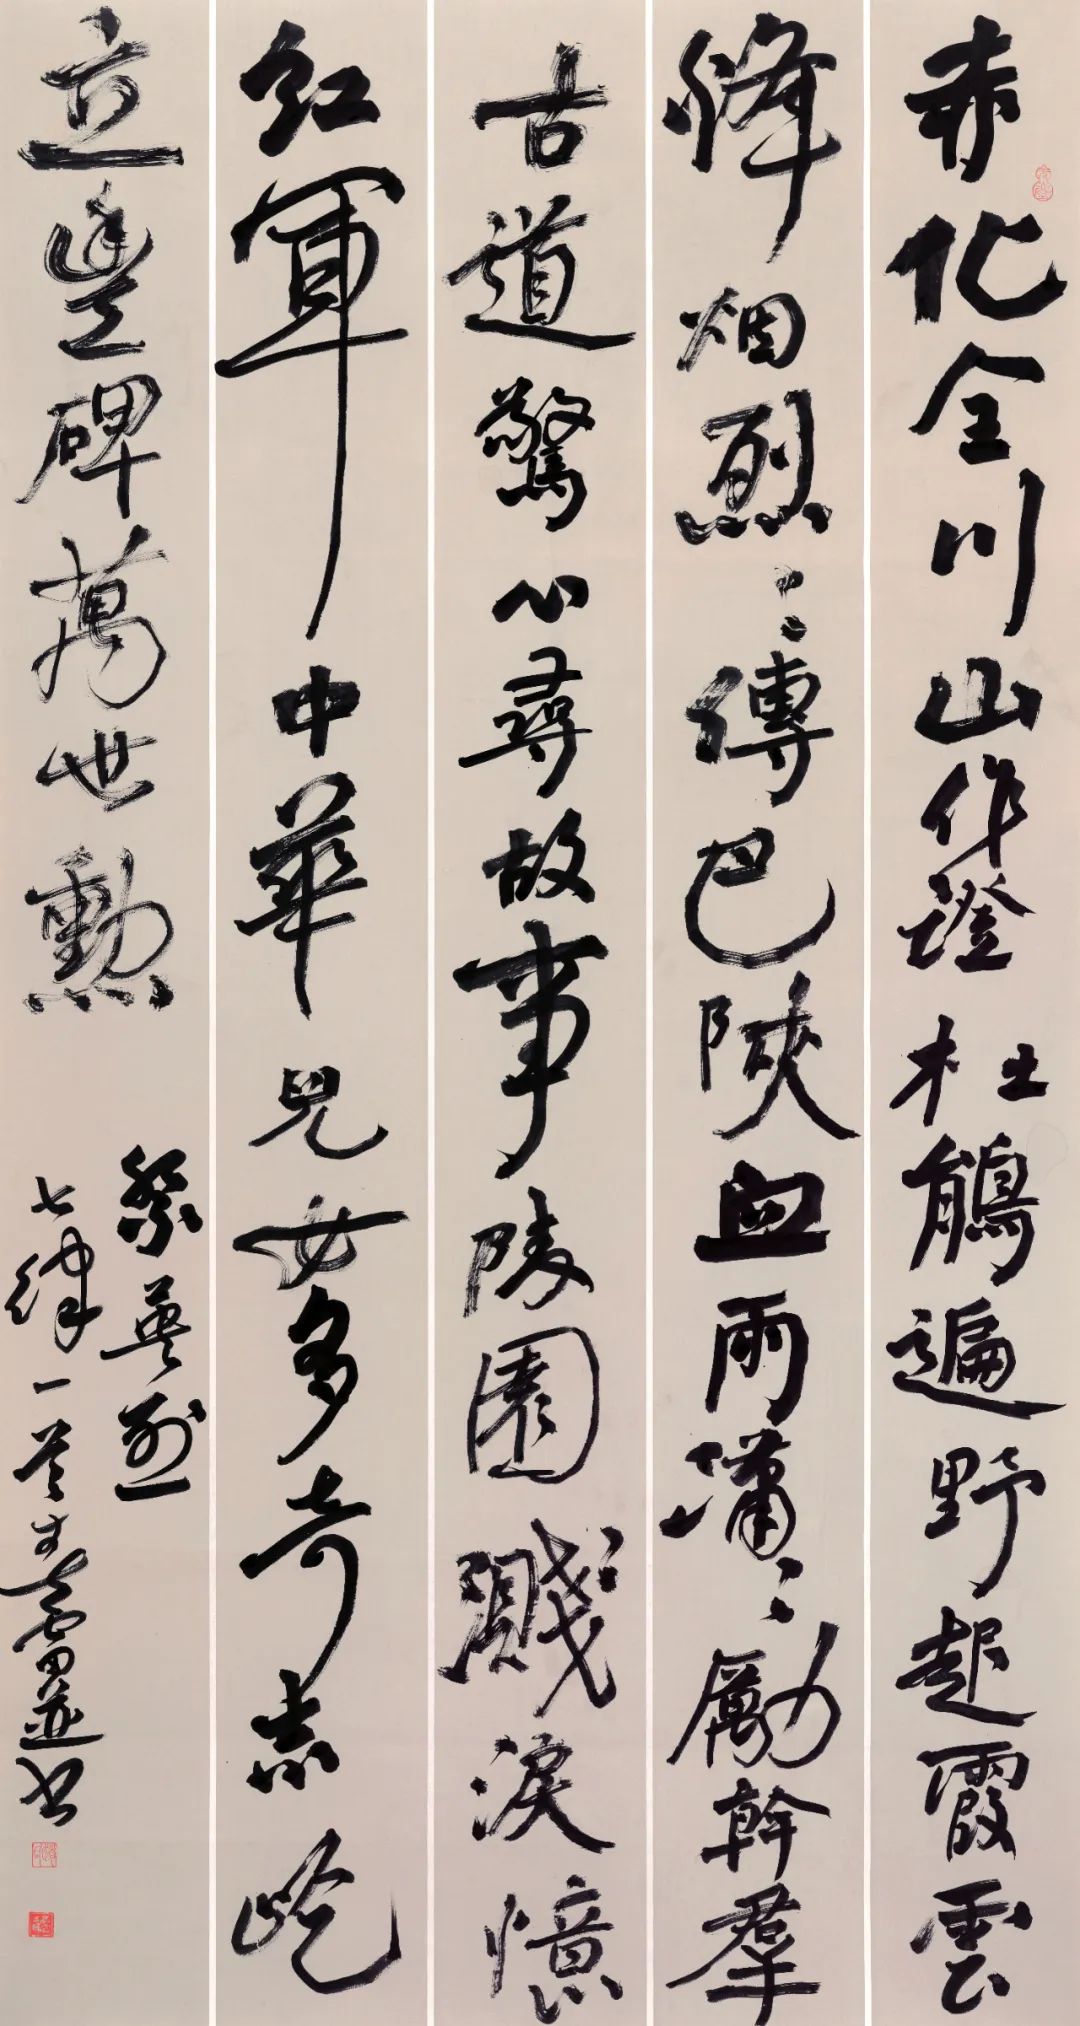 赤化全川山作證杜鵑遍野起霞雲
烽烟烈〻傳巴陝血雨瀟〻勵幹羣
古道驚心尋故事陵園濺淚憶
紅軍中華兒女多奇志屹
立豐碑萬世勳
祭英烈
七律一首
並書